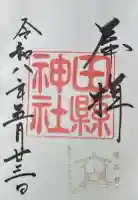 奉拝
田縣
神社
令和八年五月廿三日